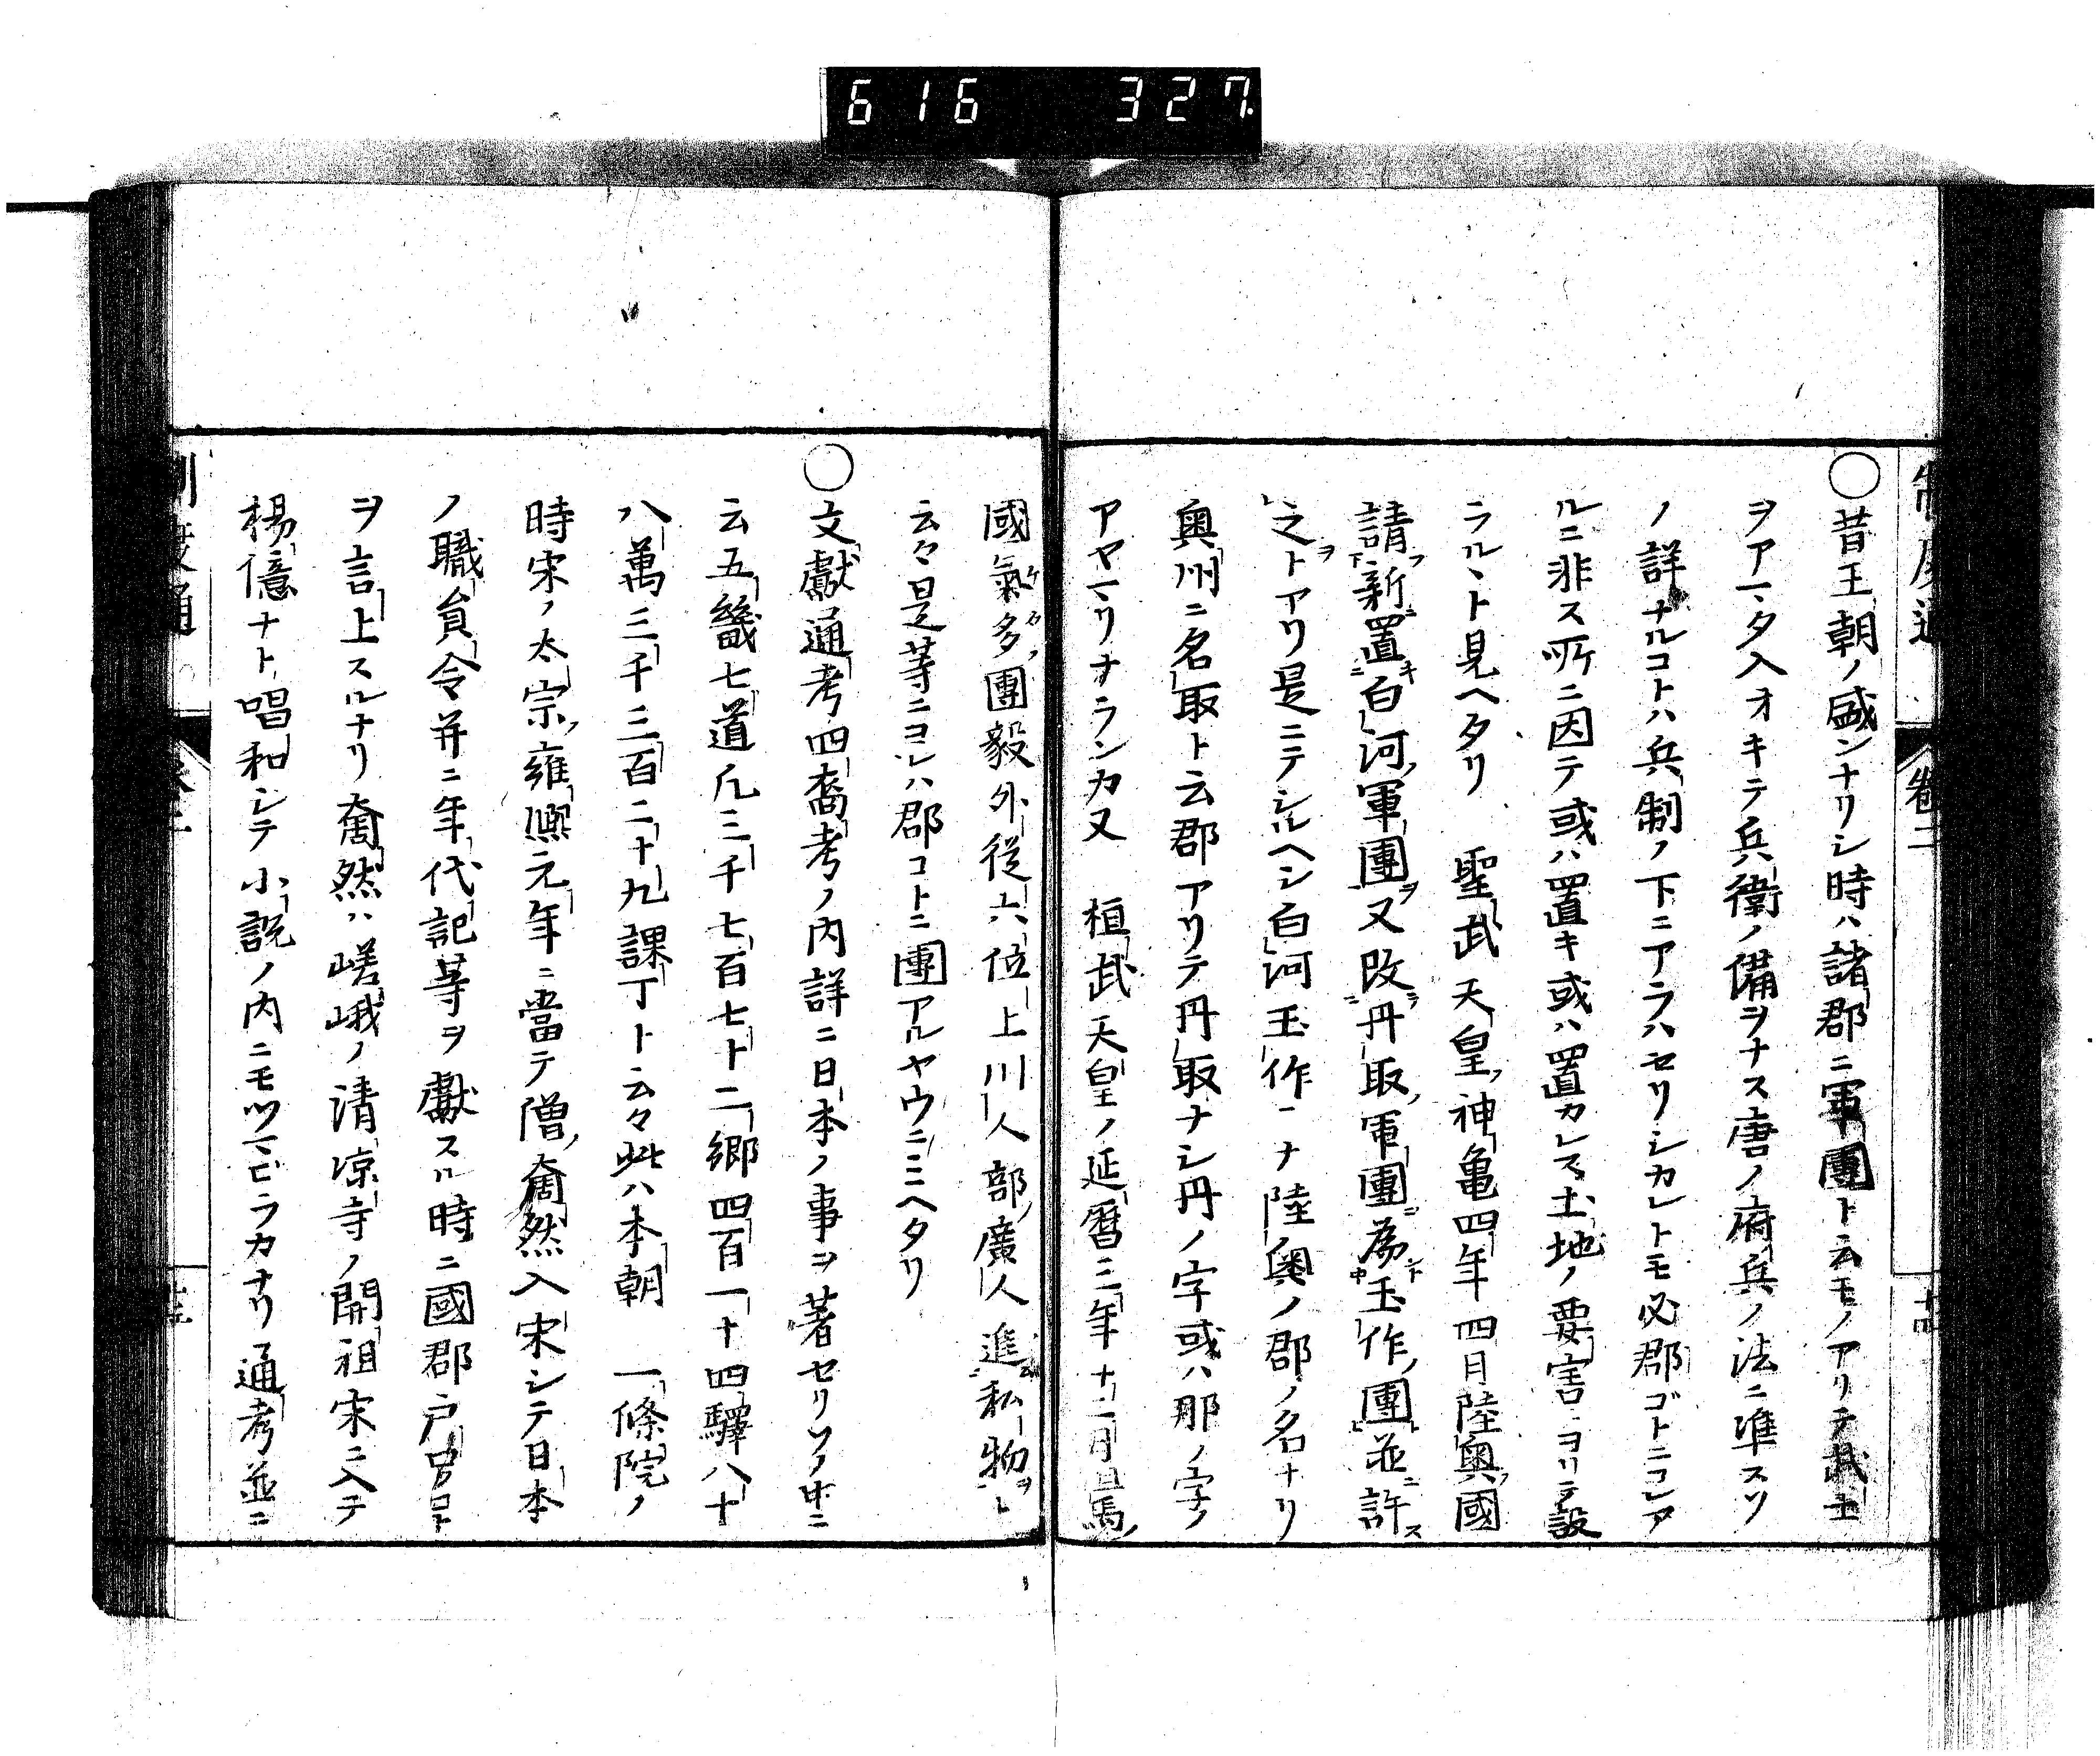 616 327
制度通 卷二 十四
〇昔王朝ノ盛ンナリシ時ハ諸郡ニ軍團ト云モノアリテ武士
ヲアマタ入オキテ兵衛ノ備ヲナス唐ノ府兵ノ法ニ準スソ
ノ詳ナルコトハ兵制ノ下ニアラハセリシカレトモ必郡ゴトニコレア
ルニ非ス所ニ因テ或ハ置キ或ハ置カレス土地ノ要害ニヨリテ設
ラルヽト見ヘタリ 聖武天皇神亀四年四月陸奥國
請新置白河軍團又改丹取軍團為玉作團並許
之トアリ是ニテシルヘシ白河玉作ミナ陸奥ノ郡ノ名ナリ
奥州ニ名取ト云郡アリテ丹取ナシ丹ノ字或ハ那ノ字ノ
アヤマリナランカ又 桓武天皇ノ延暦三年十二月但馬
國氣多團毅外從六位上川人部廣人進私物
云々是等ニヨレハ郡コトニ團アルヤウニミヘタリ
〇文獻通考四裔考ノ内詳ニ日本ノ事ヲ著セリソノ中ニ
云五畿七道凡三千七百七十二郷四百一十四驛八十
八萬三千三百二十九課丁ト云々此ハ本朝 一條院ノ
時宋ノ太宗雍熙元年ニ當テ僧奝然入宋シテ日本
ノ職員令并ニ年代記等ヲ獻スル時ニ國郡戸口
ヲ言上スルナリ奝然ハ嵯峨ノ清凉寺ノ開祖宋ニ入テ
楊億ナト唱和シテ小説ノ内ニモツマビラカナリ通考並ニ
制度通